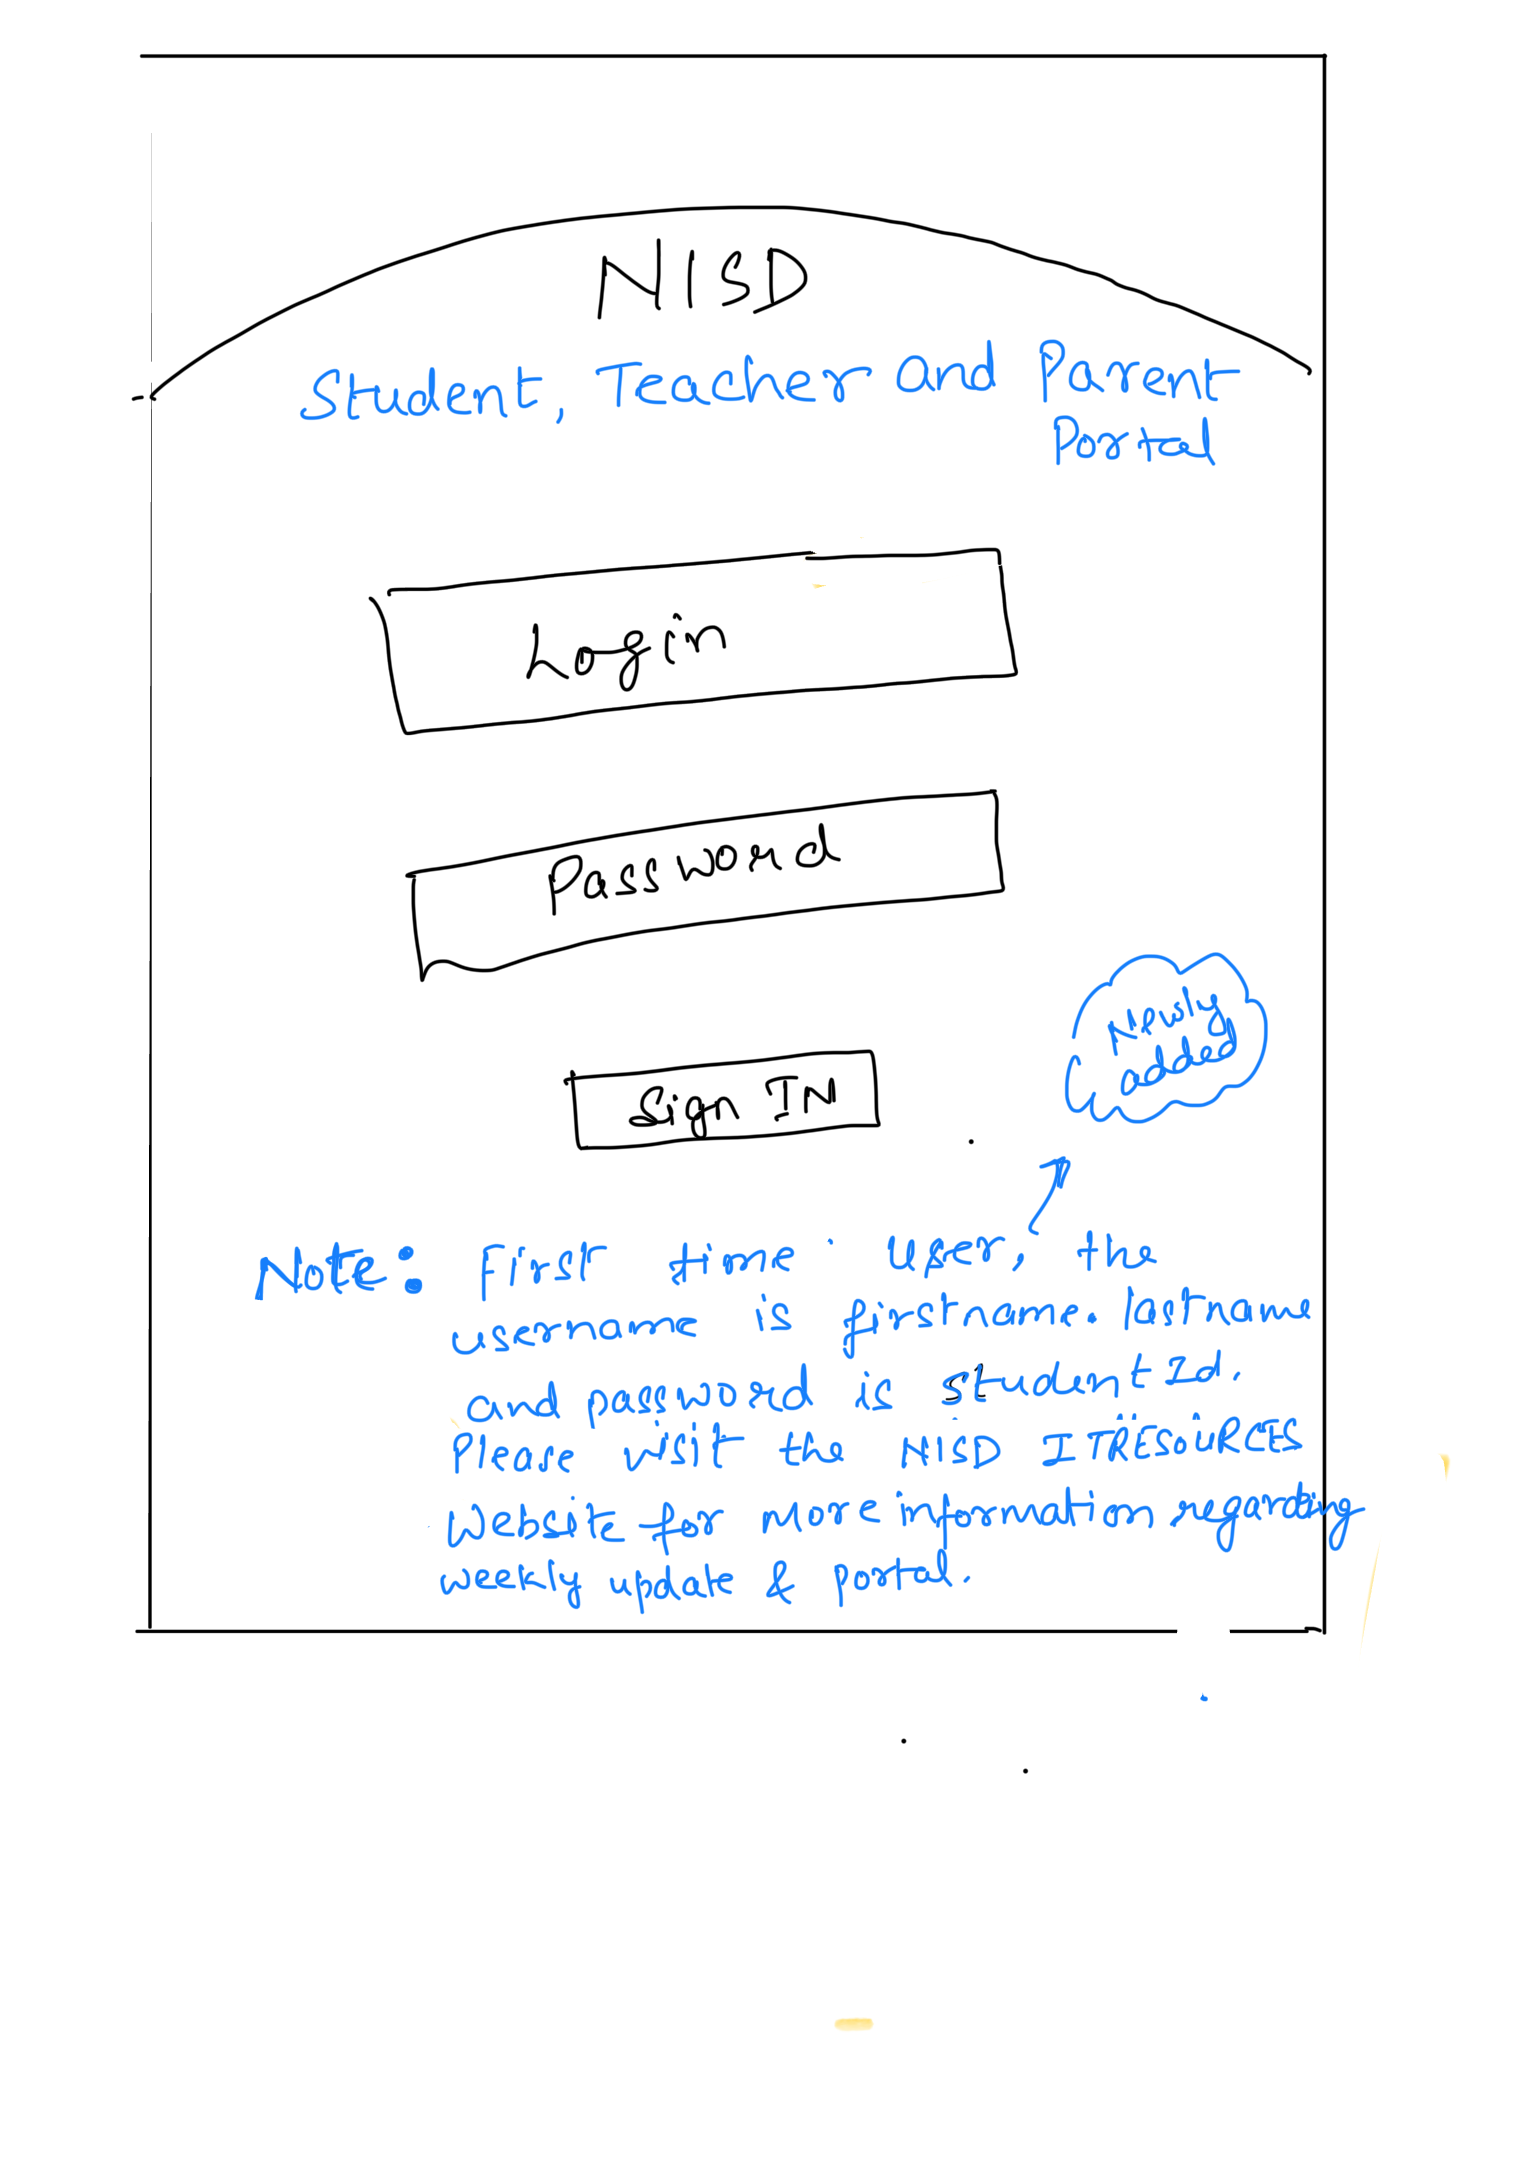 NISD
Student, Teacher and Parent
Portal
Login
Password
Newly
added
Sign IN
Note: First time user, the
username is firstname.lastname
and password is student Id.
Please visit the NISD IT RESOURCES
Website for more information regarding
weekly update & portal.